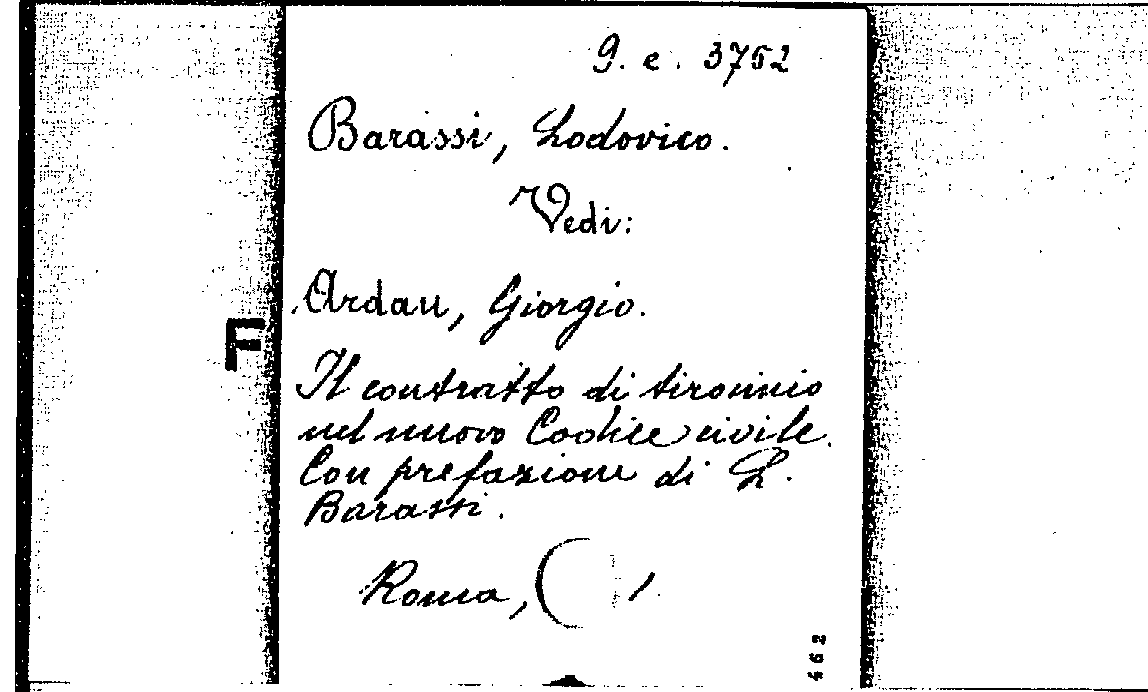 9. e. 3752
Barassi, Lodovico.
Vedi:
Ardau, Giorgio.
F
Il contratto di tirocinio
nel nuovo Codice civile.
Con prefazione di L.
Barassi.
Roma,
462